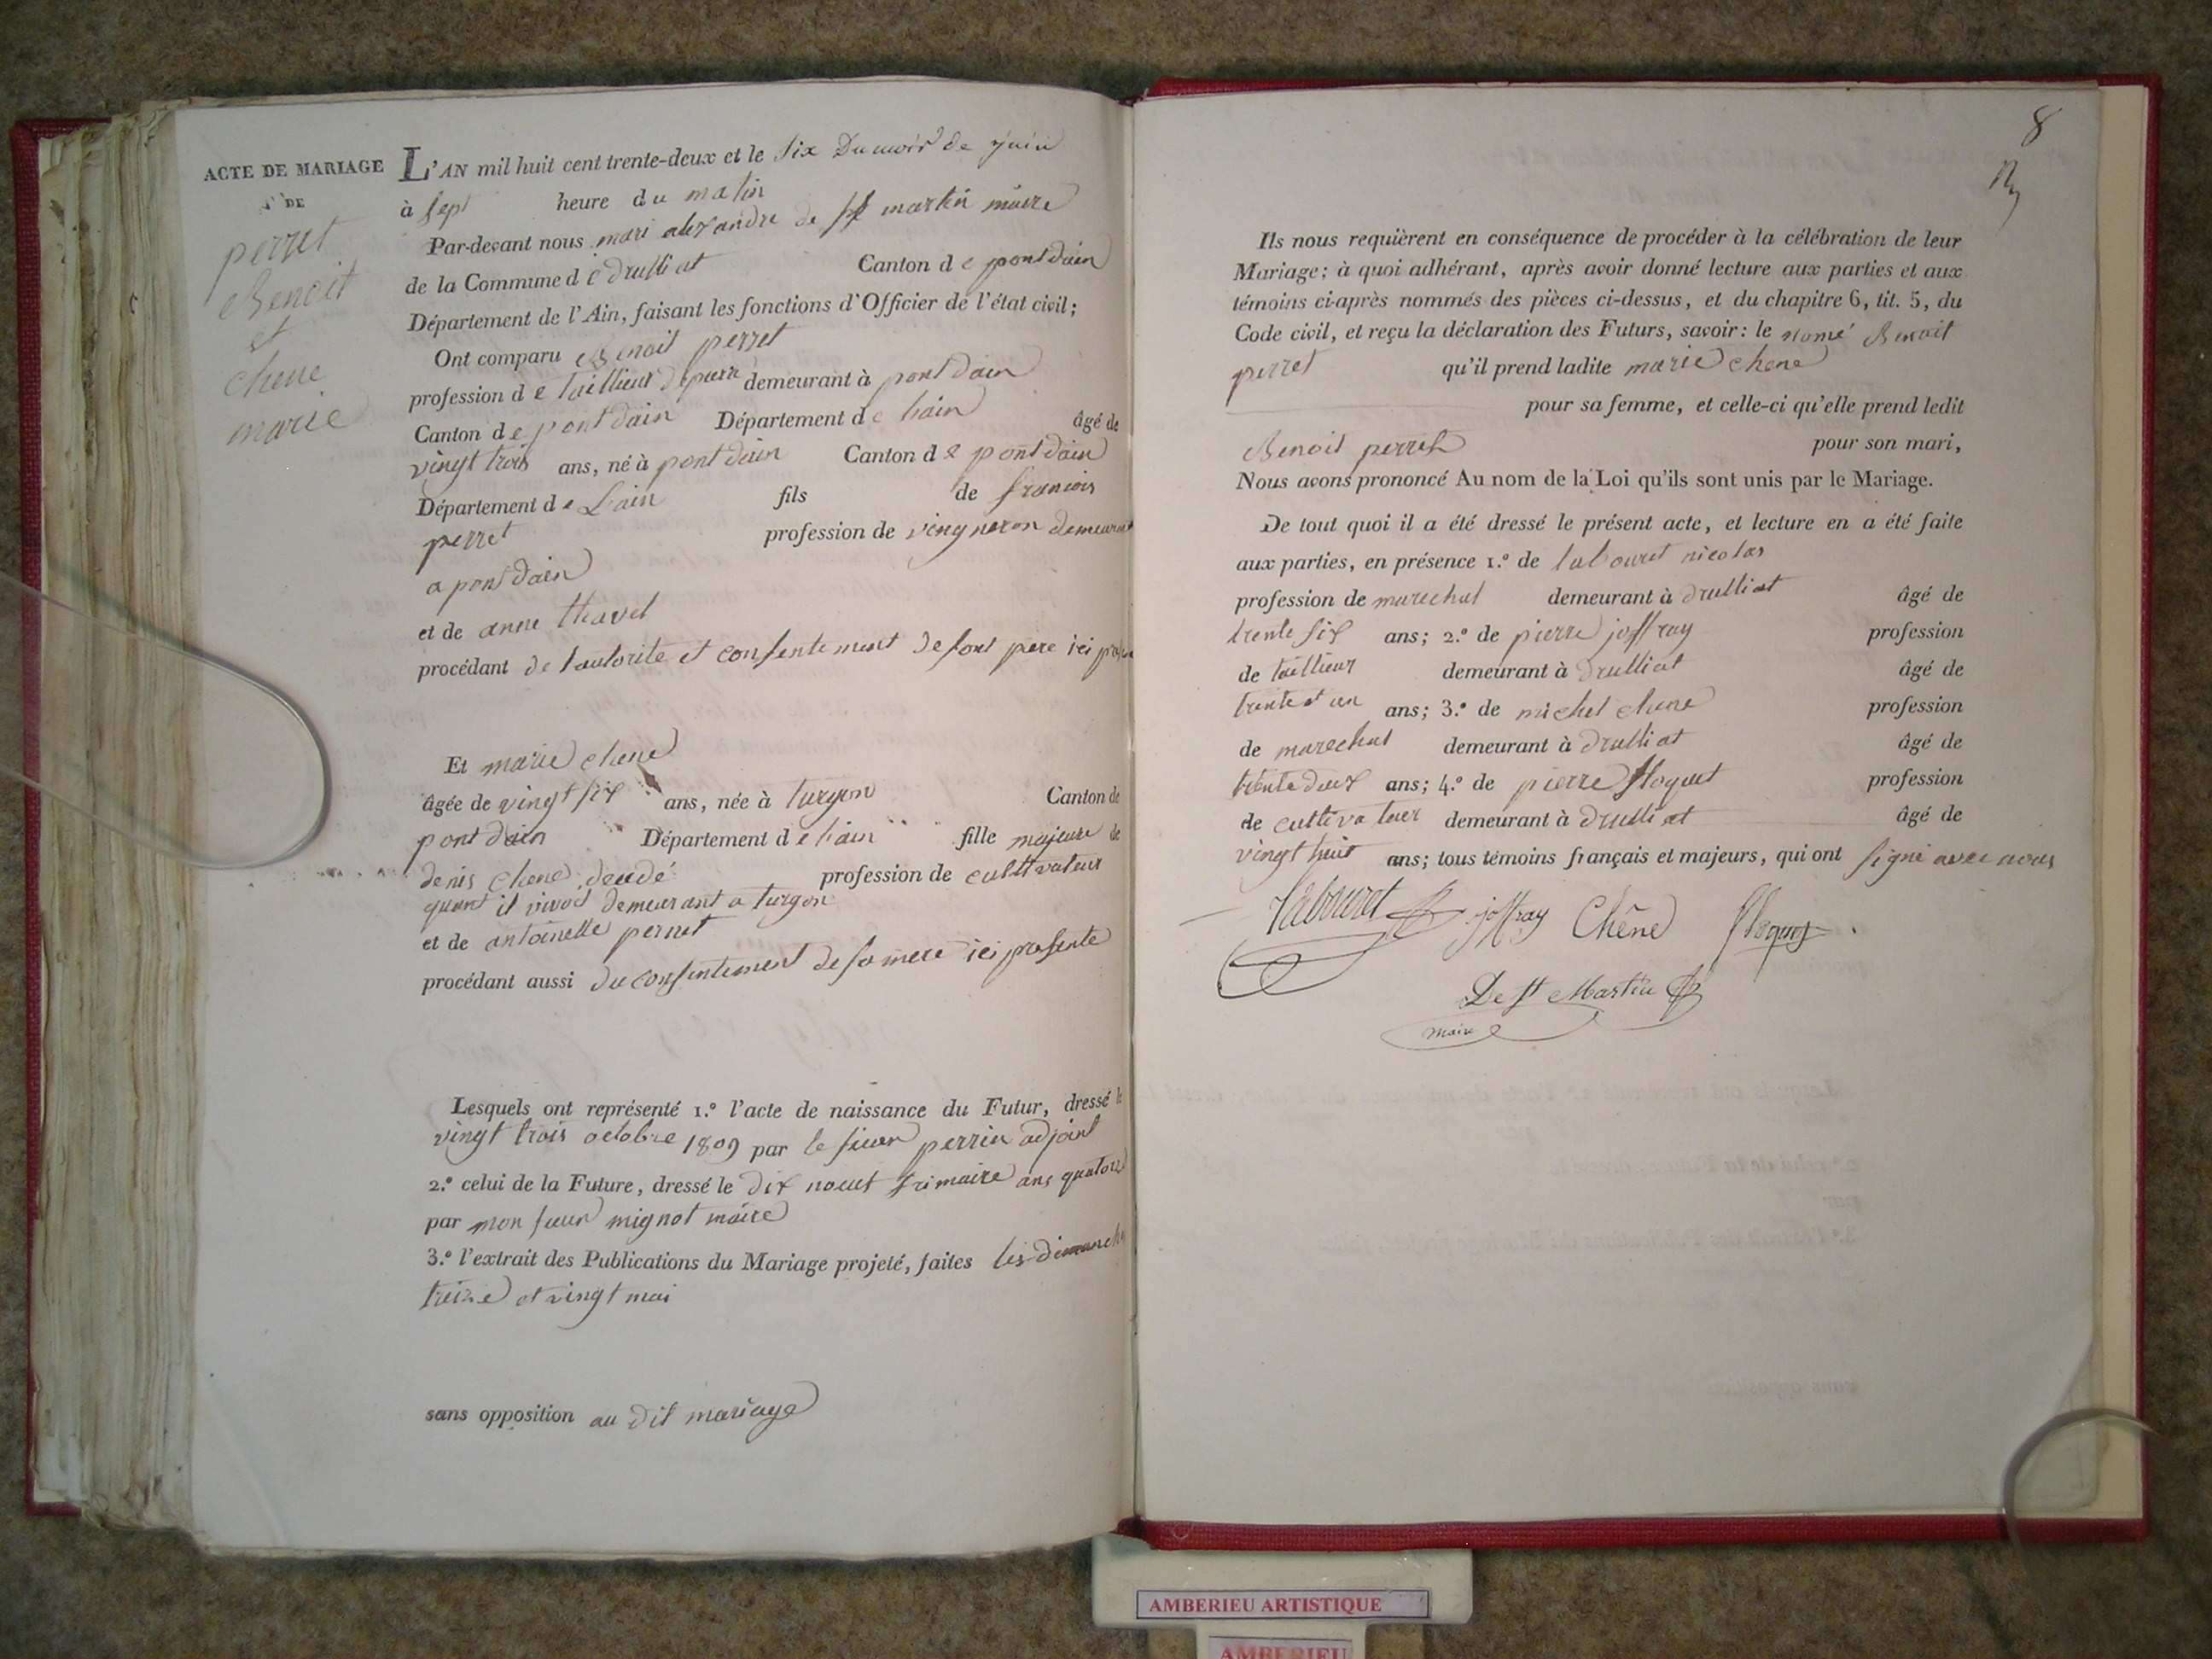 ACTE DE MARIAGE
DE
perret
Benoit
et
chene
marie
L'AN mil huit cent trente-deux et le six Du mois de juin
à sept heure du matin
Par-devant nous mari alexandre de st martin maire
de la Commune d e drulliat Canton d e pontdain
Département de l'Ain, faisant les fonctions d'Officier de l'état civil;
Ont comparu Benoit perret
profession d e taillieur depierr demeurant à pontdain
Canton d e pontdain Département d e lain âgé de
vingt trois ans, né à pontdain Canton d e pontdain
Département d e Lain fils de francois
perret profession de vingneron demeurant
a pontdain
et de anne thavel
procédant de lautorite et consentement de sont pere ici
Et marie chene
âgée de vingt six ans, née à turgon Canton de
pontdain Département d e lain fille majeure de
denis chene dendé profession de cultivateur
quant il vivoit demeurant a turgon
et de antoinette pernet
procédant aussi du consentement de sa mere ici presente
Lesquels ont représenté 1.º l'acte de naissance du Futur, dressé le
vingt trois octobre 1809 par le sieur perrin adjoint
2.º celui de la Future, dressé le dix noeuf frimaire ans quatorze
par mon sieur mignot maire
3.º l'extrait des Publications du Mariage projeté, faites les dimanche
treize et vingt mai
sans opposition au dit mariage
8
Ils nous requièrent en conséquence de procéder à la célébration de leur
Mariage; à quoi adhérant, après avoir donné lecture aux parties et aux
témoins ci-après nommés des pièces ci-dessus, et du chapitre 6, tit. 5, du
Code civil, et reçu la déclaration des Futurs, savoir: le nomé Benoit
perret qu'il prend ladite marie chene
pour sa femme, et celle-ci qu'elle prend ledit
Benoit perret pour son mari,
Nous avons prononcé Au nom de la Loi qu'ils sont unis par le Mariage.
De tout quoi il a été dressé le présent acte, et lecture en a été faite
aux parties, en présence 1.º de labouret nicolas
profession de marechal demeurant à drulliat âgé de
trente six ans; 2.º de pierre joffray profession
de taillieur demeurant à drulliat âgé de
trente et un ans; 3.º de michel chene profession
de marechal demeurant à drulliat âgé de
trente deux ans; 4.º de pierre floquet profession
de cultivateur demeurant à drulliat âgé de
vingt huit ans; tous témoins français et majeurs, qui ont signé avec nous
Labouret joffray Chêne floquet
De st Martin
maire
AMBERIEU ARTISTIQUE
AMBERIEU